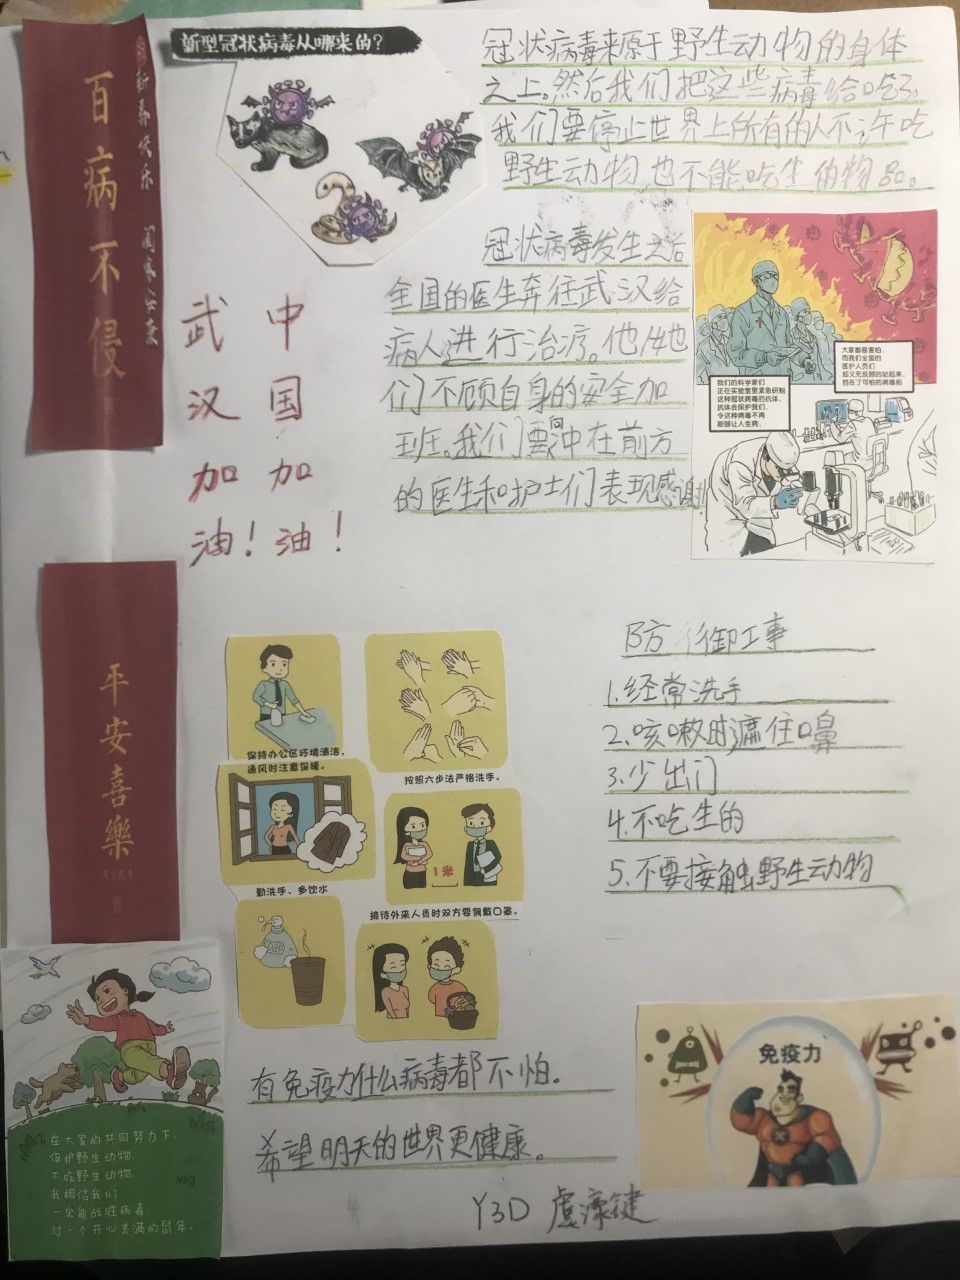 百病不侵
新春快乐
阖家安康
新型冠状病毒从哪来的？
冠状病毒来源于野生动物的身体
之上。然后我们把这些病毒给吃了。
我们要停止世界上所有的人不许吃
野生动物,也不能吃生的物品。
冠状病毒发生之后
全国的医生奔往武汉给
病人进行治疗。他/她
们不顾自身的安全加
班。我们要向冲在前方
的医生和护士们表现感谢!
武汉加油！
中国加油！
大家都很害怕，
而我们全国的
医护人员们
却义无反顾的站起来，
挡在了可怕的病毒前
我们的科学家们
正在实验室里紧急研制
这种冠状病毒的抗体，
抗体会保护我们，
令这种病毒不再
能够让人生病。
平安喜樂
保持办公区环境清洁，
通风时注意保暖。
按照六步法严格洗手。
1米
勤洗手、多饮水
接待外来人员时双方要佩戴口罩。
防御工事
1.经常洗手
2.咳嗽时遮住嘴鼻
3.少出门
4.不吃生的
5.不要接触野生动物
在大家的共同努力下,
保护野生动物,
不吃野生动物,
我相信我们
一定能战胜病毒
过一个开心美满的鼠年。
有免疫力什么病毒都不怕。
希望明天的世界更健康。
免疫力
Y3D